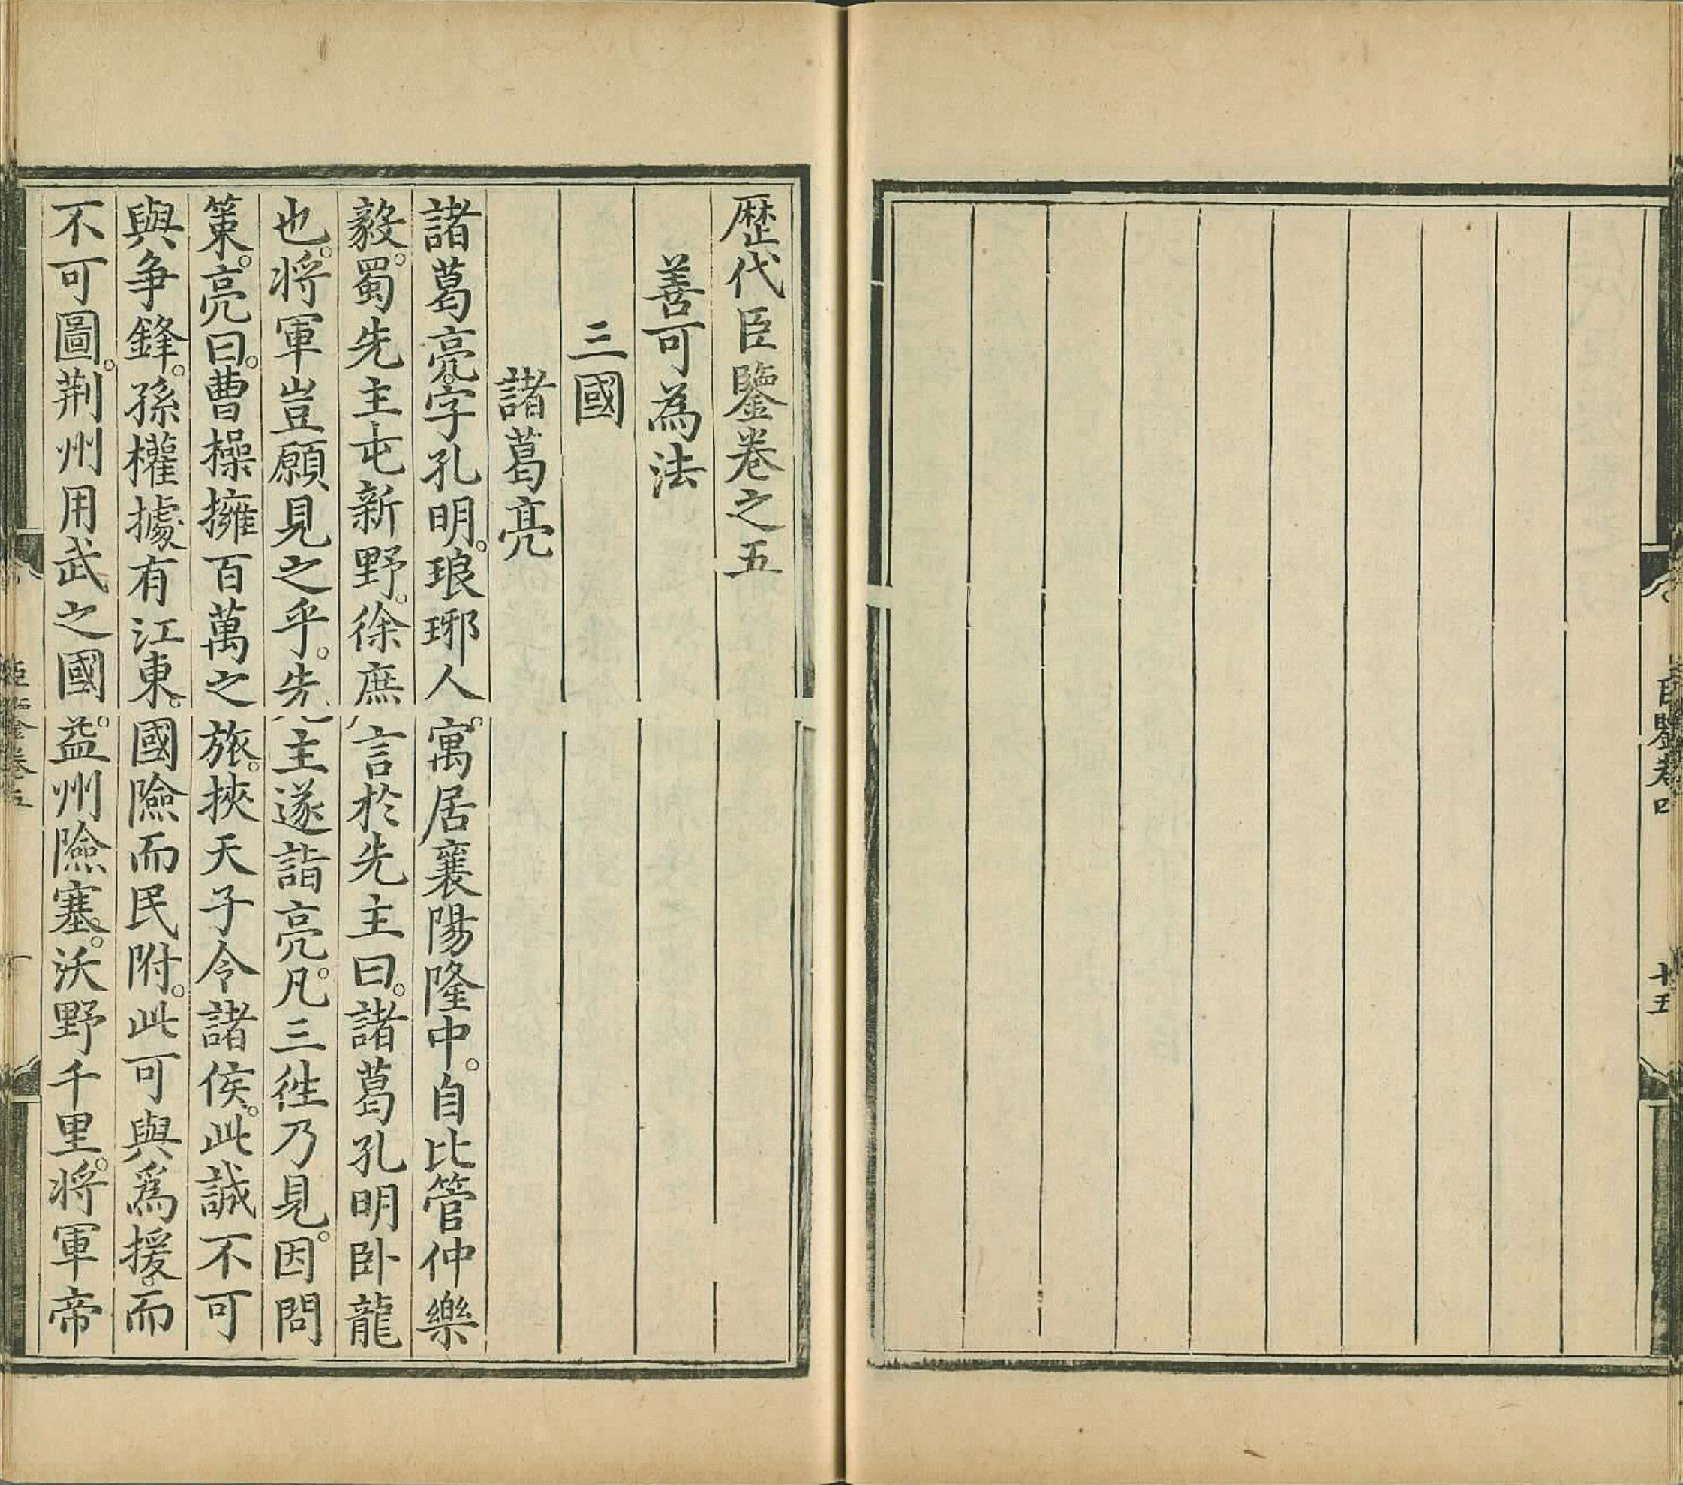 臣鑒卷四
十五
歷代臣鑒卷之五
善可為法
三國
諸葛亮
諸葛亮。字孔明。琅琊人。寓居襄陽隆中。自比管仲樂
毅。蜀先主屯新野。徐庶言於先主曰。諸葛孔明卧龍
也。將軍豈願見之乎。先主遂詣亮。凡三徃乃見。因問
策。亮曰。曹操擁百萬之旅。挾天子令諸侯。此誠不可
與爭鋒。孫權據有江東。國險而民附。此可與爲援。而
不可圖。荆州用武之國。益州險塞。沃野千里。將軍帝
臣鑒卷五